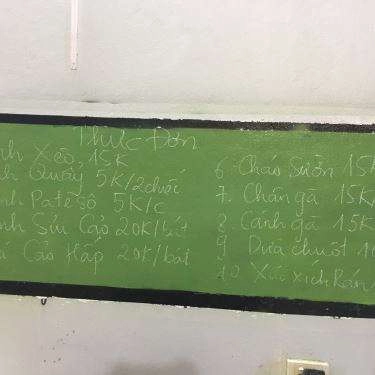 Thực Đơn
nh Xèo 15K
nh Quẩy 5K/2chiếc
nh Patê sô 5K/c
nh Sủi Cảo 20K/bát
á Cảo Hấp 20K/bát
6. Cháo Sườn 15K
7. Chân gà 15K/
8 Cánh gà 15K
9 Dưa chuột 1
10 Xúc xích Rán